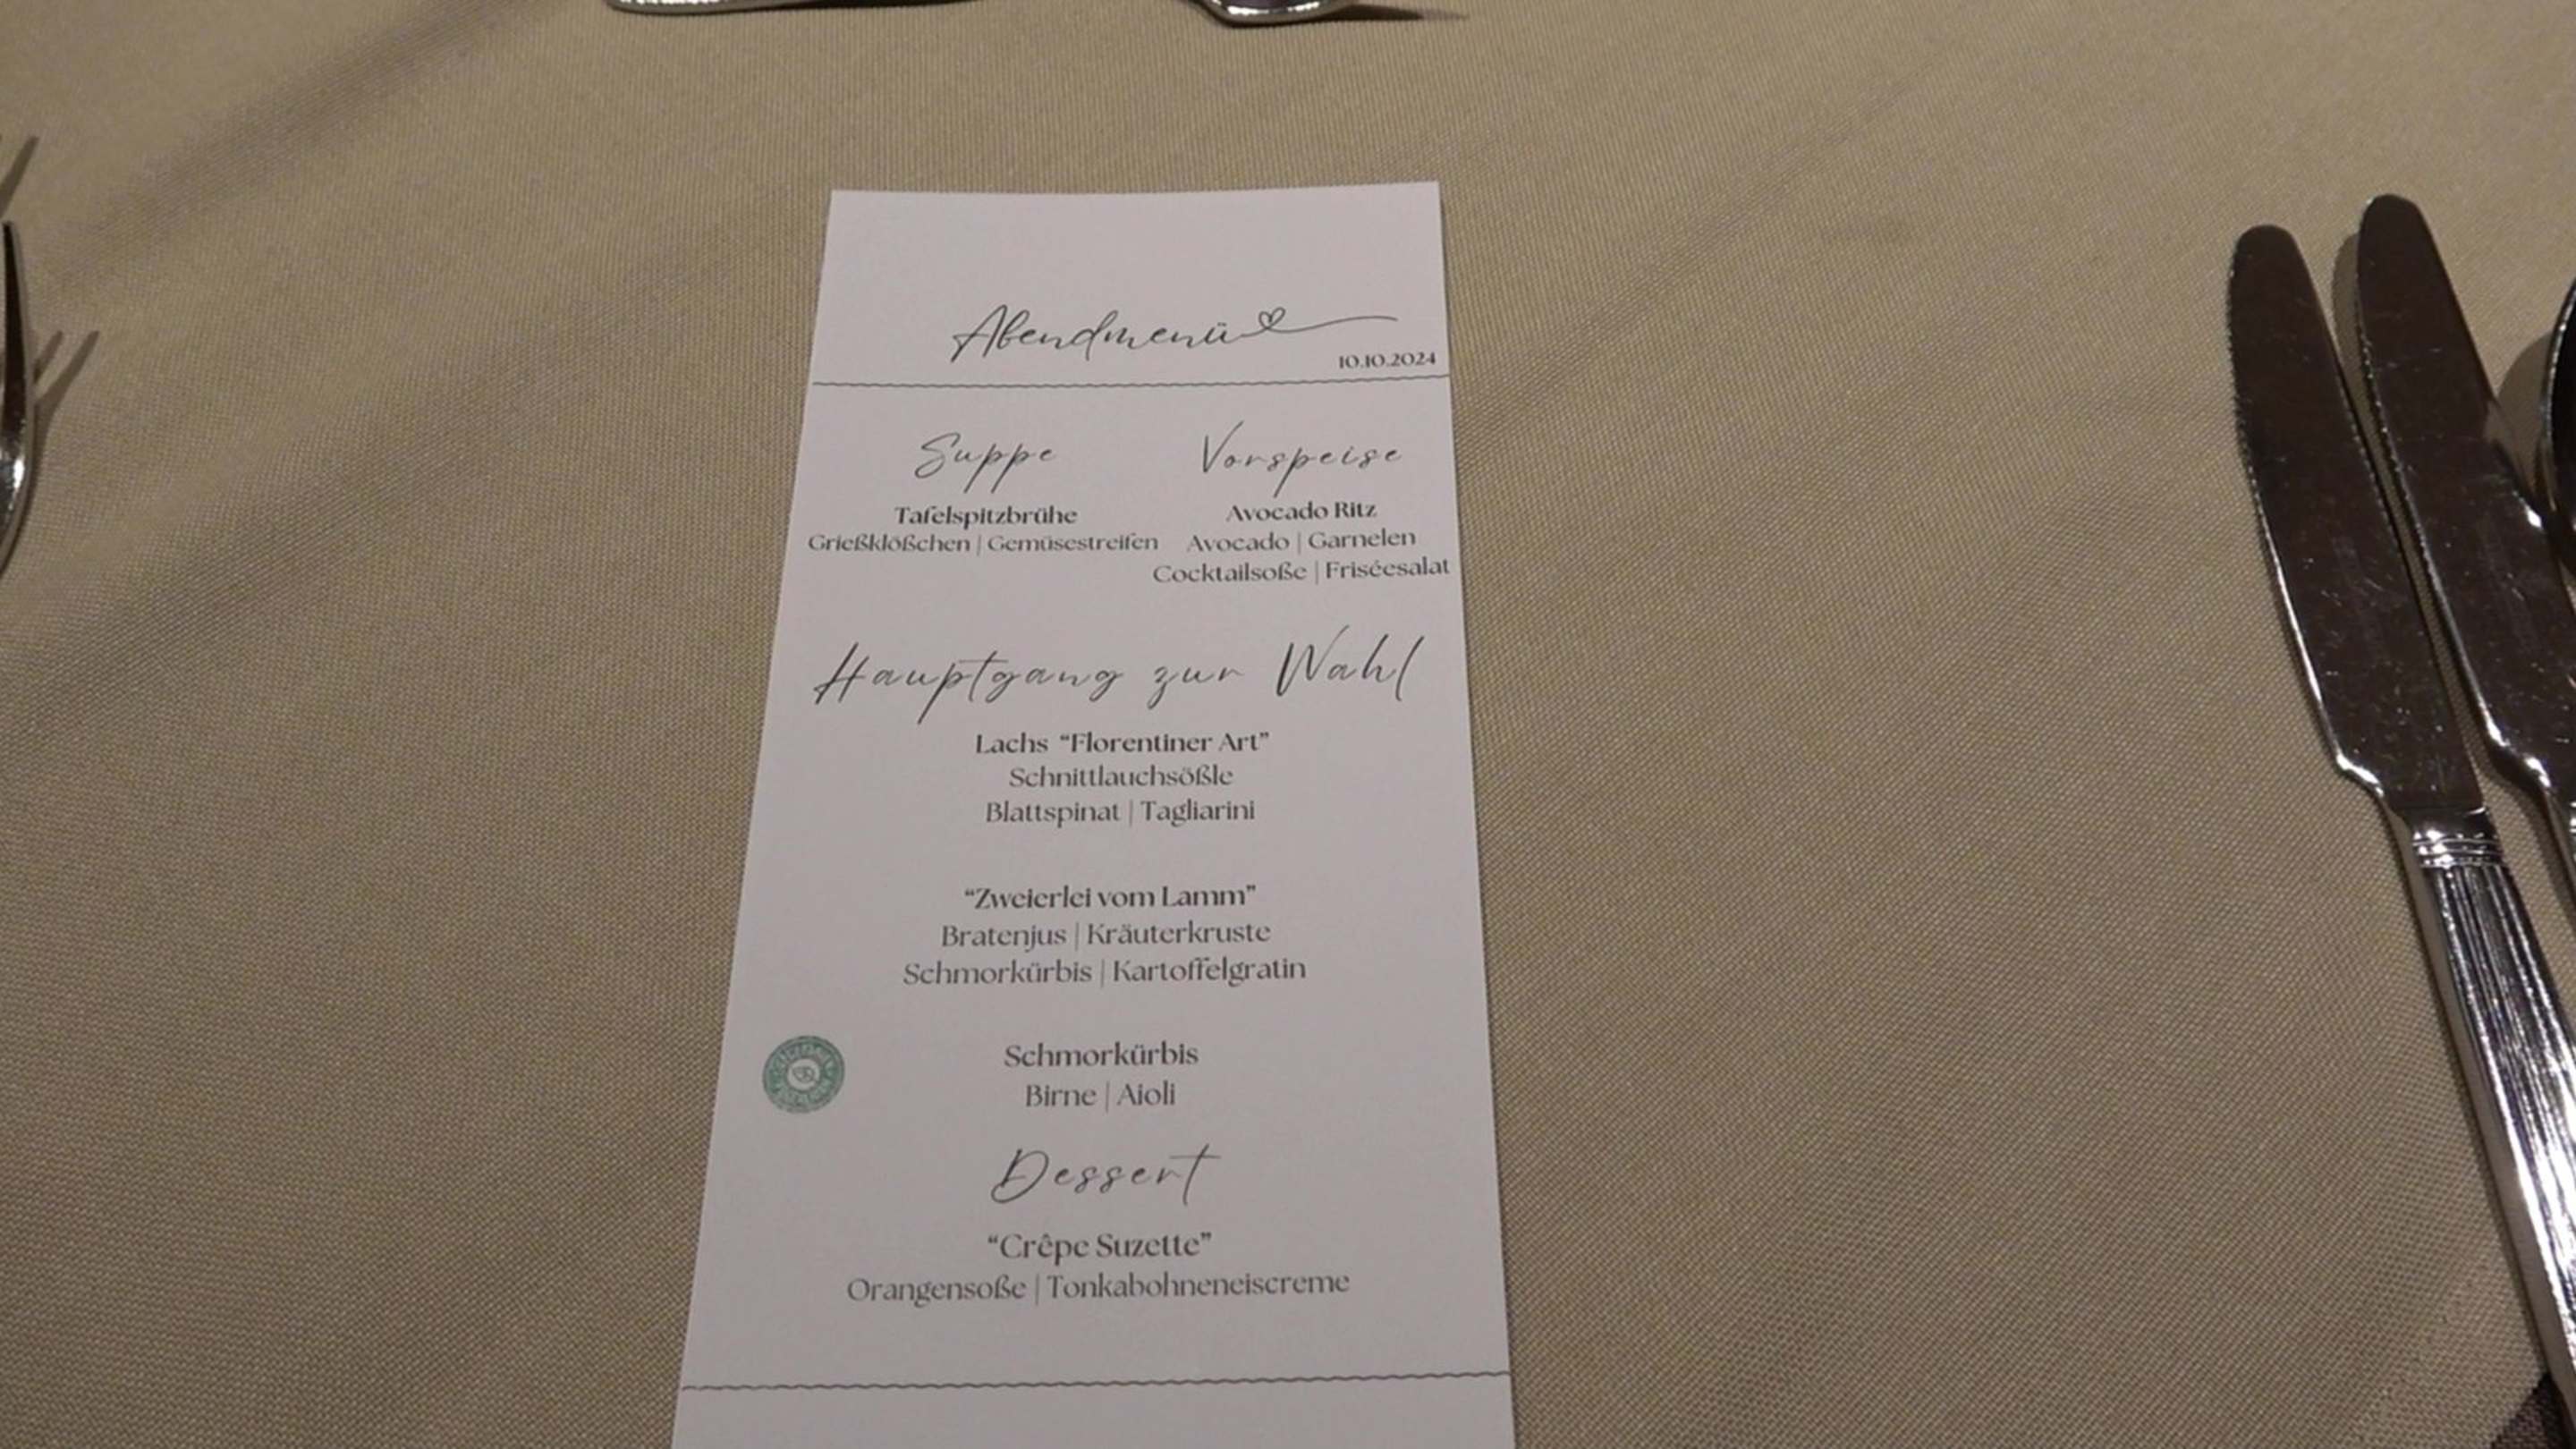 Abendmenü
10.10.2024
Suppe
Tafelspitzbrühe
Grießklößchen | Gemüsestreifen
Vorspeise
Avocado Ritz
Avocado | Garnelen
Cocktailsoße | Friséesalat
Hauptgang zur Wahl
Lachs “Florentiner Art”
Schnittlauchsößle
Blattspinat | Tagliarini
“Zweierlei vom Lamm”
Bratenjus | Kräuterkruste
Schmorkürbis | Kartoffelgratin
Schmorkürbis
Birne | Aioli
Dessert
“Crêpe Suzette”
Orangensoße | Tonkabohneneiscreme